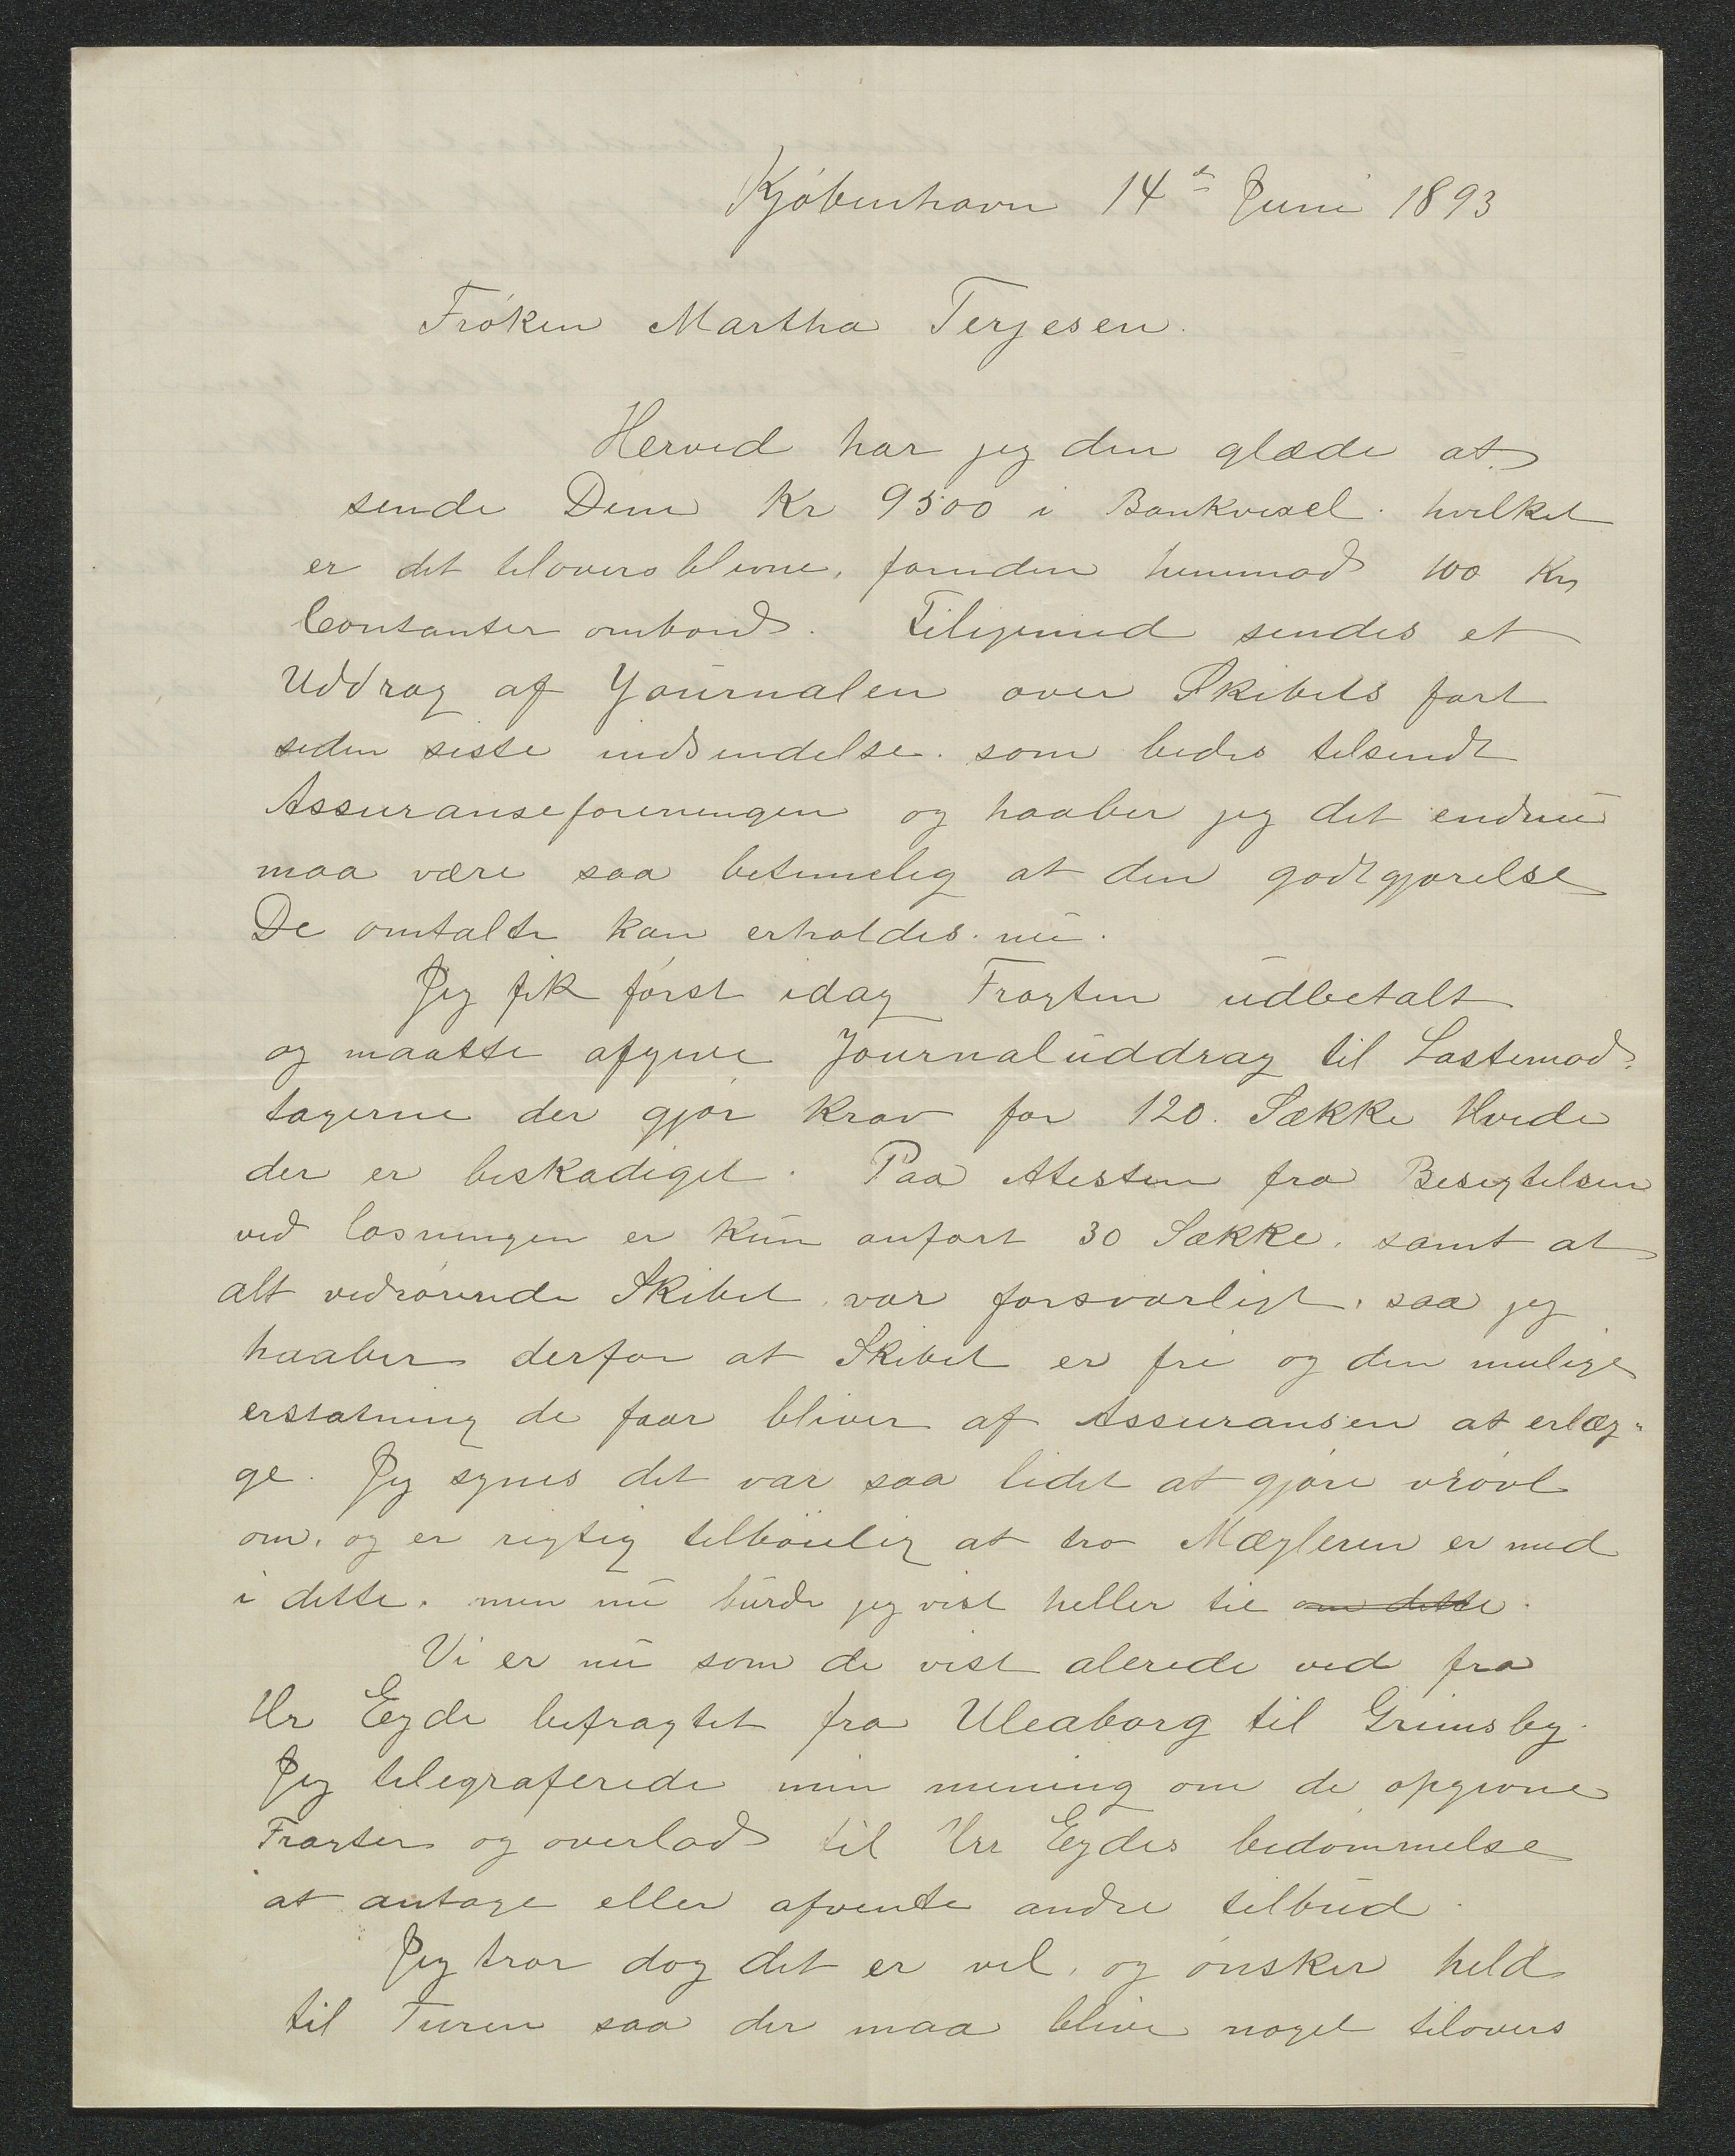 Kjøbenhavn 14de Juni 1893
Frøken Martha Terjesen.
Herved har jeg den glæde at
sende Dem Kr 9500 i Bankvexel. hvilket
er det tilovers blevne, foruden henimod 100 Kr
Contanter ombord. Tiligemed sendes et
Uddrag af Journalen over Skibets fart
siden siste indsendelse. som bedes tilsendt
Assuranseforeningen og haaber jeg det endnu
maa være saa betimelig at den godtgjørelse
De omtalte kan erholdes. nu.
Jeg fik først idag Fragten udbetalt
og maatte afgive Journaluddrag til Lastemod-
tagerne der gjør krav for 120. Sække Hvede
der er beskadiget. Paa Atesten fra Besigtelsen
ved losningen er kun anført 30 Sække. samt at
alt vedrørende Skibet var forsvarligt, saa jeg
haaber derfor at Skibet er fri og den mulige
erstatning de faar bliver af Assuransen at erlæg-
ge. Jeg synes det var saa lidet at gjøre vrøvl
om. og er rigtig tilbøielig at tro Mægleren er med
i dette. men nu burde jeg vist heller tie om dette.
Vi er nu som de vist alerede ved fra
Hr Eyde befragtet fra Uleaborg til Grimsby.
Jeg telegraferede min mening om de opgivne
Fragter og overlod til Hrr Eydes bedømmelse
at antage eller afvente andre tilbud.
Jeg tror dog det er vel, og ønsker held
til Turen saa der maa blive noget tilovers